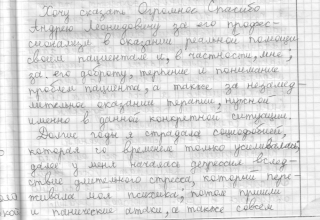 Хочу сказать Огромное Спасибо
Андрею Леонидовичу за его профес-
сионализм в оказании реальной помощи
своим пациентам и, в частности, мне;
за его доброту, терпение и понимание
проблем пациента, а также за незамед-
лительное оказание терапии, нужной
именно в данной конкретной ситуации.
Долгие годы я страдала социофобией,
которая со временем только усиливалась,
далее у меня началась депрессия вслед-
ствие длительного стресса, который пере-
живала моя психика; потом пришли
и панические атаки, а также совсем